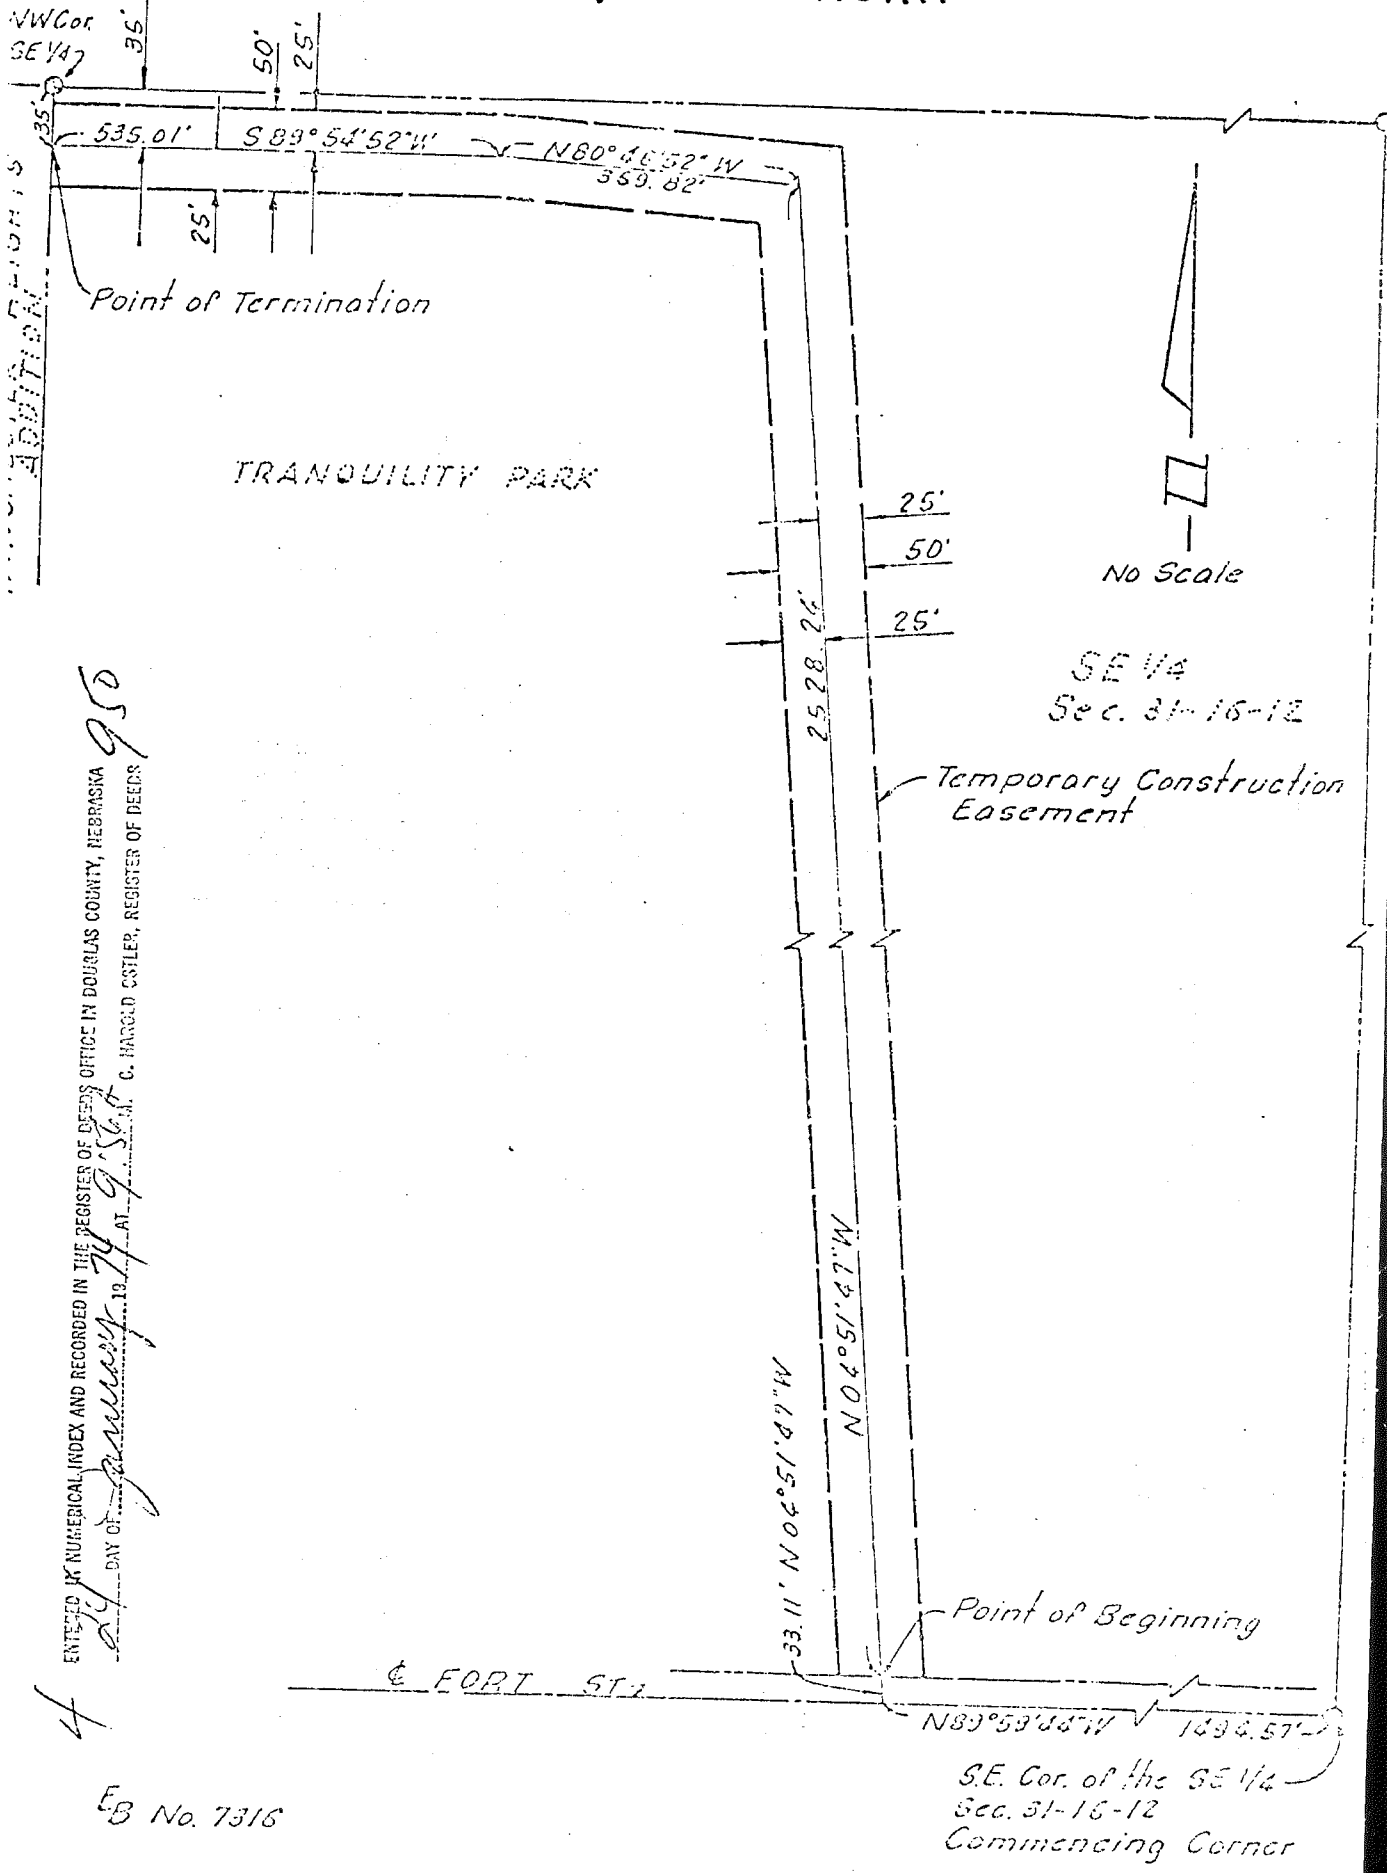 NW Cor.
SE 1/4
35'
50'
25'
35'
535.01'
S 89° 54' 52" W
N80° 46' 52" W
359.82'
25'
Point of Termination
ADDITION
TRANQUILITY PARK
25'
50'
25'
2528.24'
No Scale
SE 1/4
Sec. 31-16-12
Temporary Construction
Easement
N 0°51'47" W
33.11', N 0°51'47" W
Point of Beginning
℄ FORT ST.
N89°59'44"W 1494.57'
S.E. Cor. of the SE 1/4
Sec. 31-16-12
Commencing Corner
ENTERED IN NUMERICAL INDEX AND RECORDED IN THE REGISTER OF DEEDS OFFICE IN DOUGLAS COUNTY, NEBRASKA 950
24 DAY OF January 1974 AT 9:56 A M. C. HAROLD OSTLER, REGISTER OF DEEDS
4
EB No. 7316